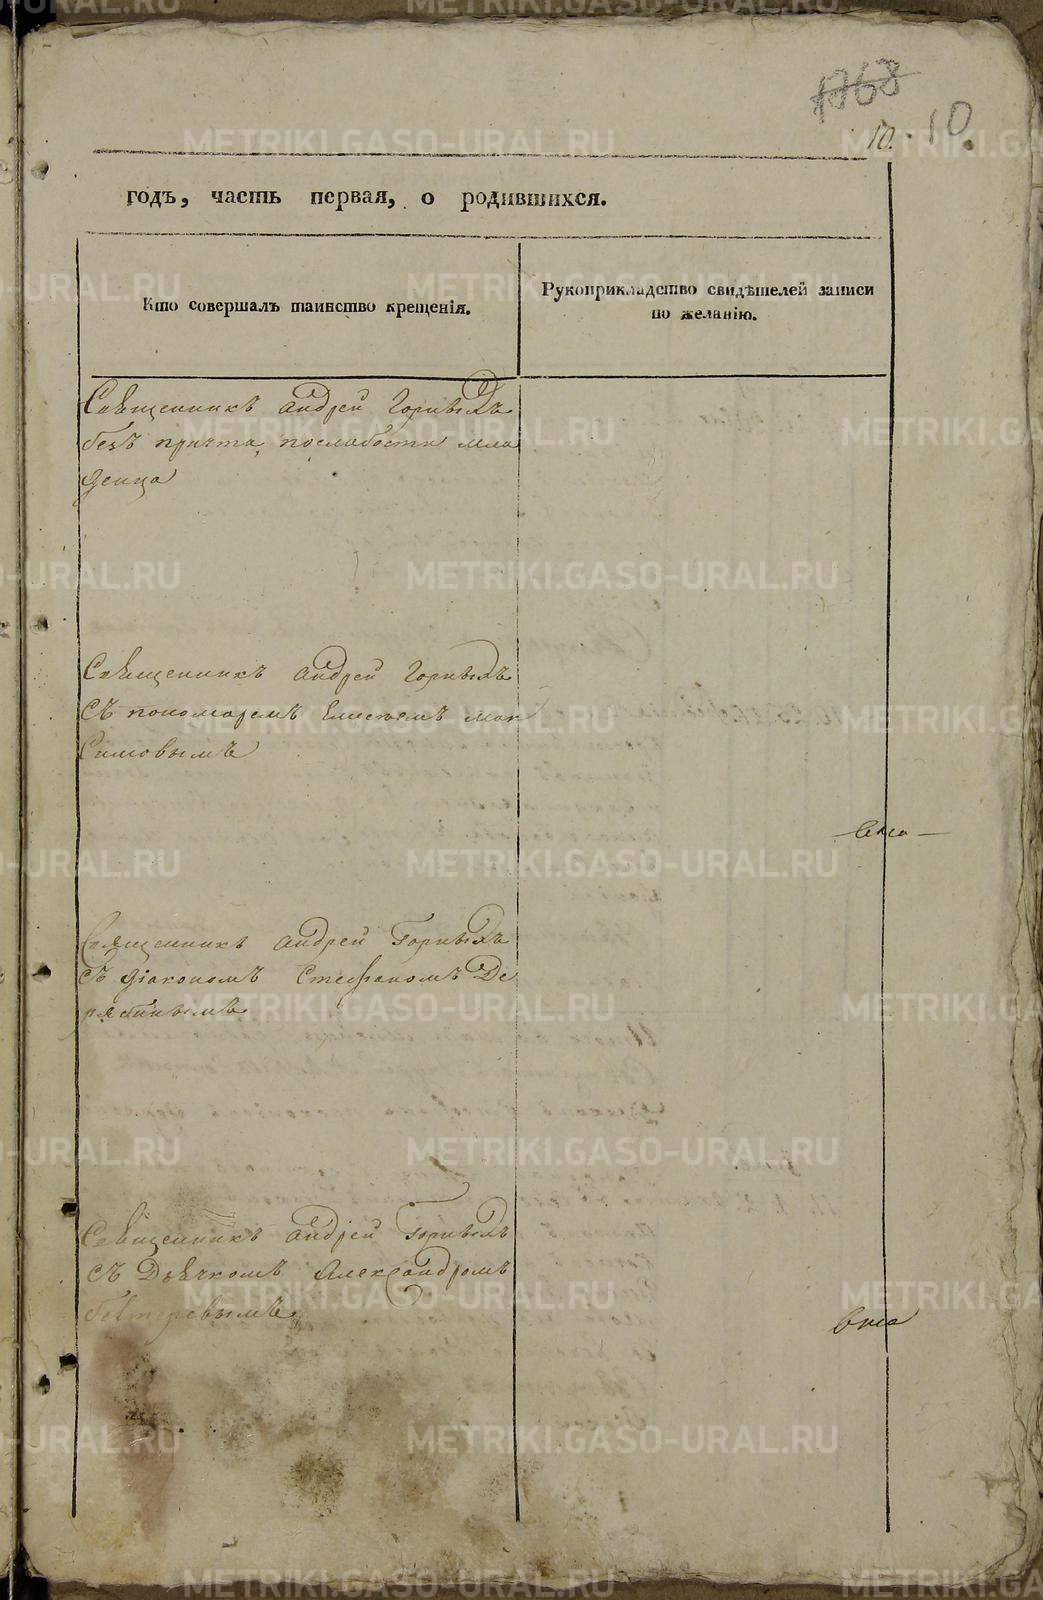 1768
10. 10
годъ, часть первая, о родившихся.
Кто совершалъ таинство крещенія.
Рукоприкладство свидѣтелей записи
по желанію.
Священникъ Андрей Горныхъ
безъ причта, послабости мла
денца
Священникъ Андрей Горныхъ
съ пономаремъ Елисеемъ Мак
симовымъ
Священникъ Андрей Горныхъ
съ діакономъ Стефаномъ Де
рябинымъ
Священникъ Андрей Горныхъ
съ Дьячкомъ Александромъ
METRIKI.GASO-URAL.RU